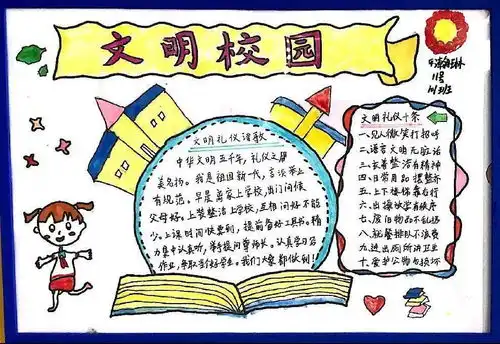 文明校园
11号
文明礼仪谣歌
中华文明五千年,礼仪之邦
美名扬。我是祖国新一代,言谈举止
有规范。早晨离家上学校,出门问候
父母好。上装整洁上学校,互相问好不能
少。上课时间快要到,提前备好工具书。精
力集中认真听,举手提问尊师长。认真学习写
作业,争取当个好学生。我们大家都做到!
文明礼仪十条
一、见人微笑打招呼
二、语言文明无脏话
三、衣着整洁有精神
四、日常用品摆整齐
五、上下楼梯靠右行
六、出操快字有秩序
七、废旧物品不乱扔
八、就餐排队不浪费
九、进出厕所讲卫生
十、爱护公物与损坏